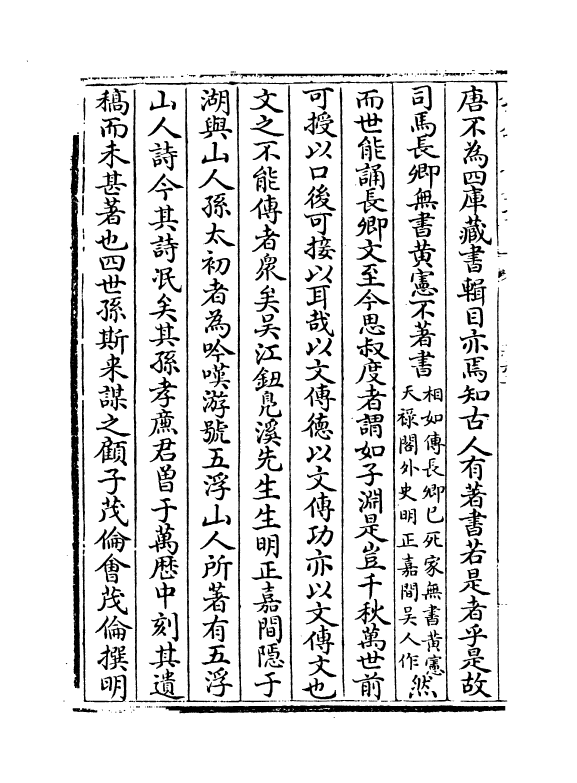 唐不為四庫藏書輯目亦焉知古人有著書若是者乎是故
司馬長卿無書黄憲不著書相如傳長卿已死家無書黄憲天禄閣外史明正嘉間吳人作然
而世能誦長卿文至今思叔度者謂如子淵是豈千秋萬世前
可授以口後可接以耳哉以文傳德以文傳功亦以文傳文也
文之不能傳者衆矣吴江鈕凫溪先生生明正嘉間隠于
湖與山人孫太初者為吟嘆游號五浮山人所著有五浮
山人詩今其詩泯矣其孫孝廉君曽于萬歴中刻其遺
稿而未甚著也四世孫斯来謀之顧子茂倫會茂倫撰明